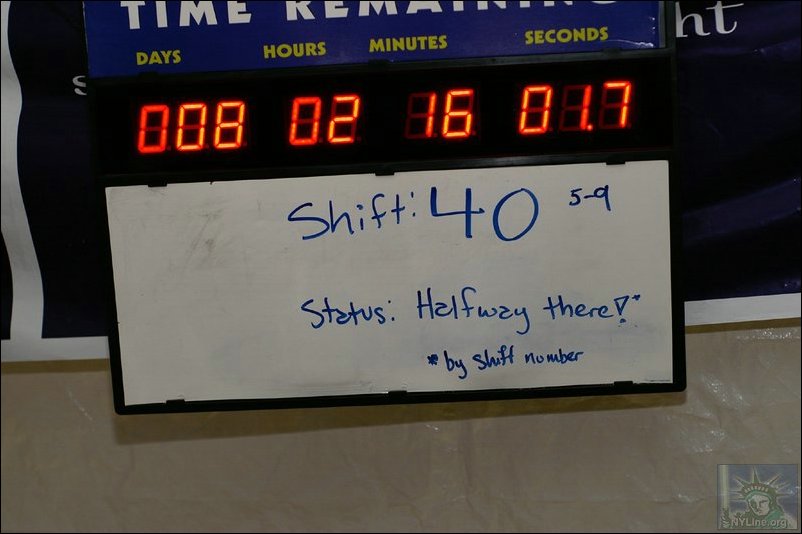 TIME REMAINING
ht
DAYS HOURS MINUTES SECONDS
S
008 02 16 01.7
Shift: 40 5-9
Status: Halfway there!*
*by shift number
NYLine.org